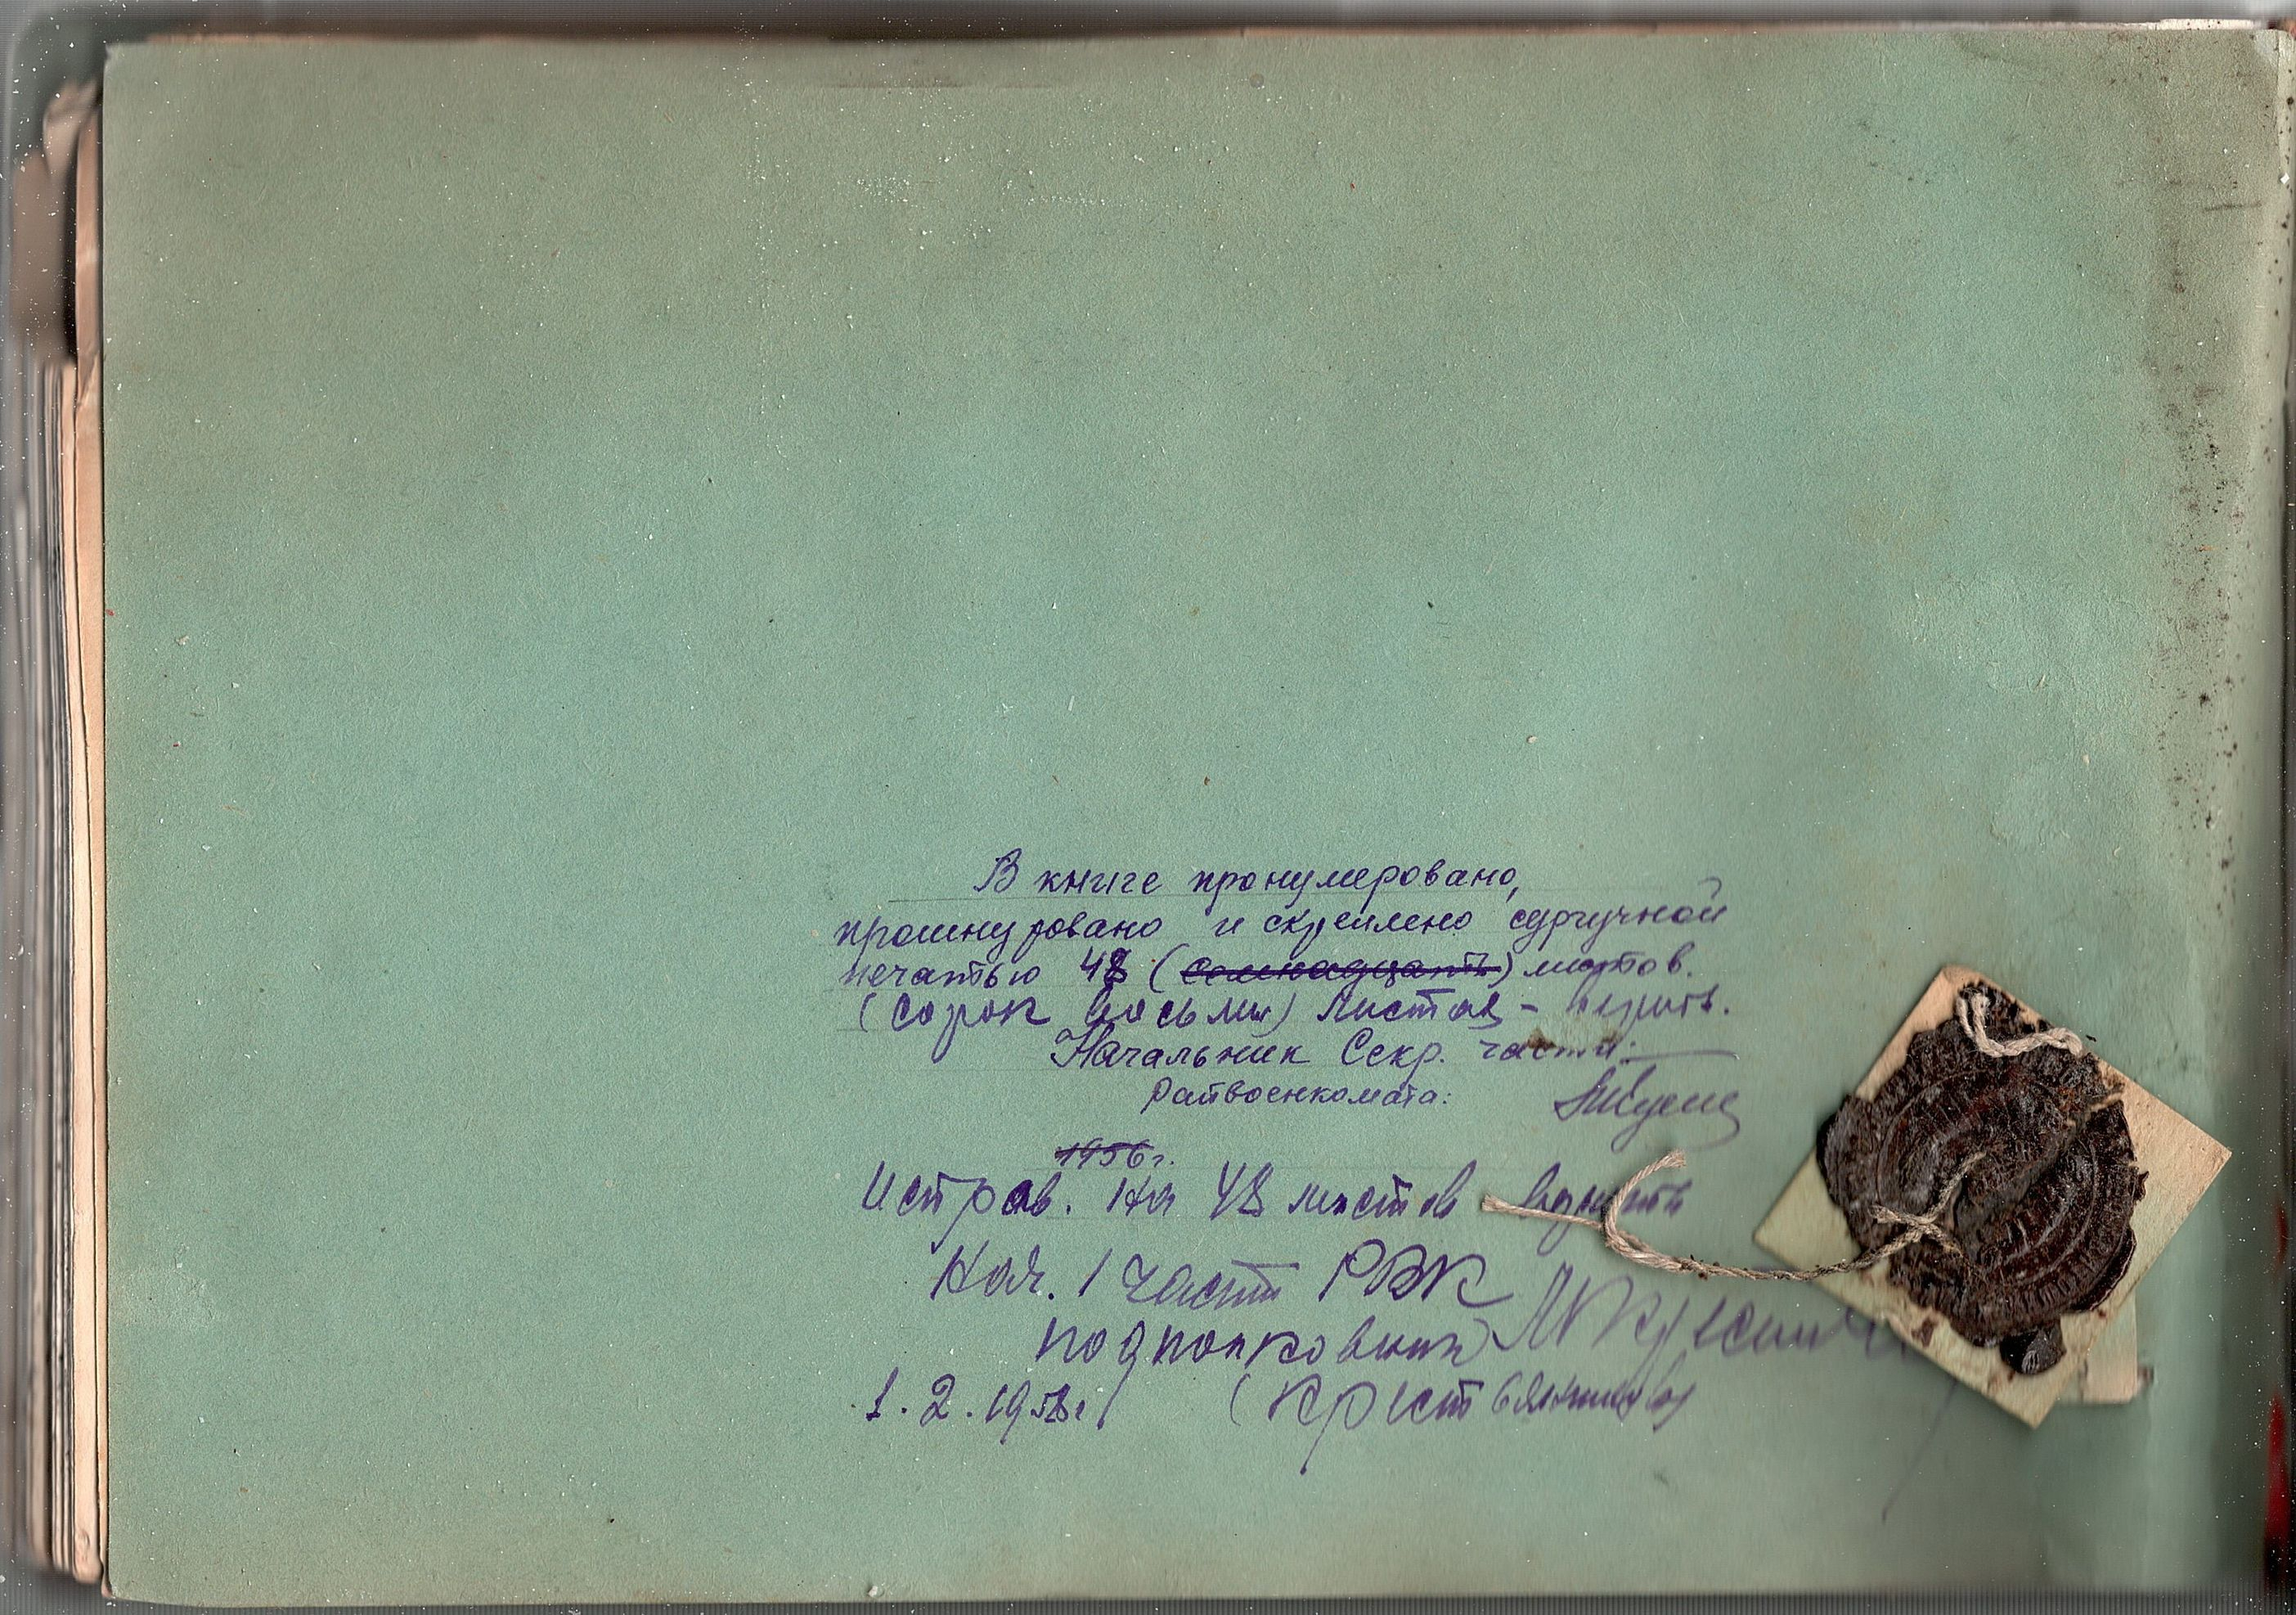 В книге пронумеровано,
прошнуровано и скреплено сургучной
печатью 48 (семнадцать) листов.
(сорок восьми) листов - верить.
Начальник Секр. части:
Райвоенкомата:
1956 г.
Исправ. на 48 листов верить
Нач. 1 части РВК
подполковник
1.2.1958 г.